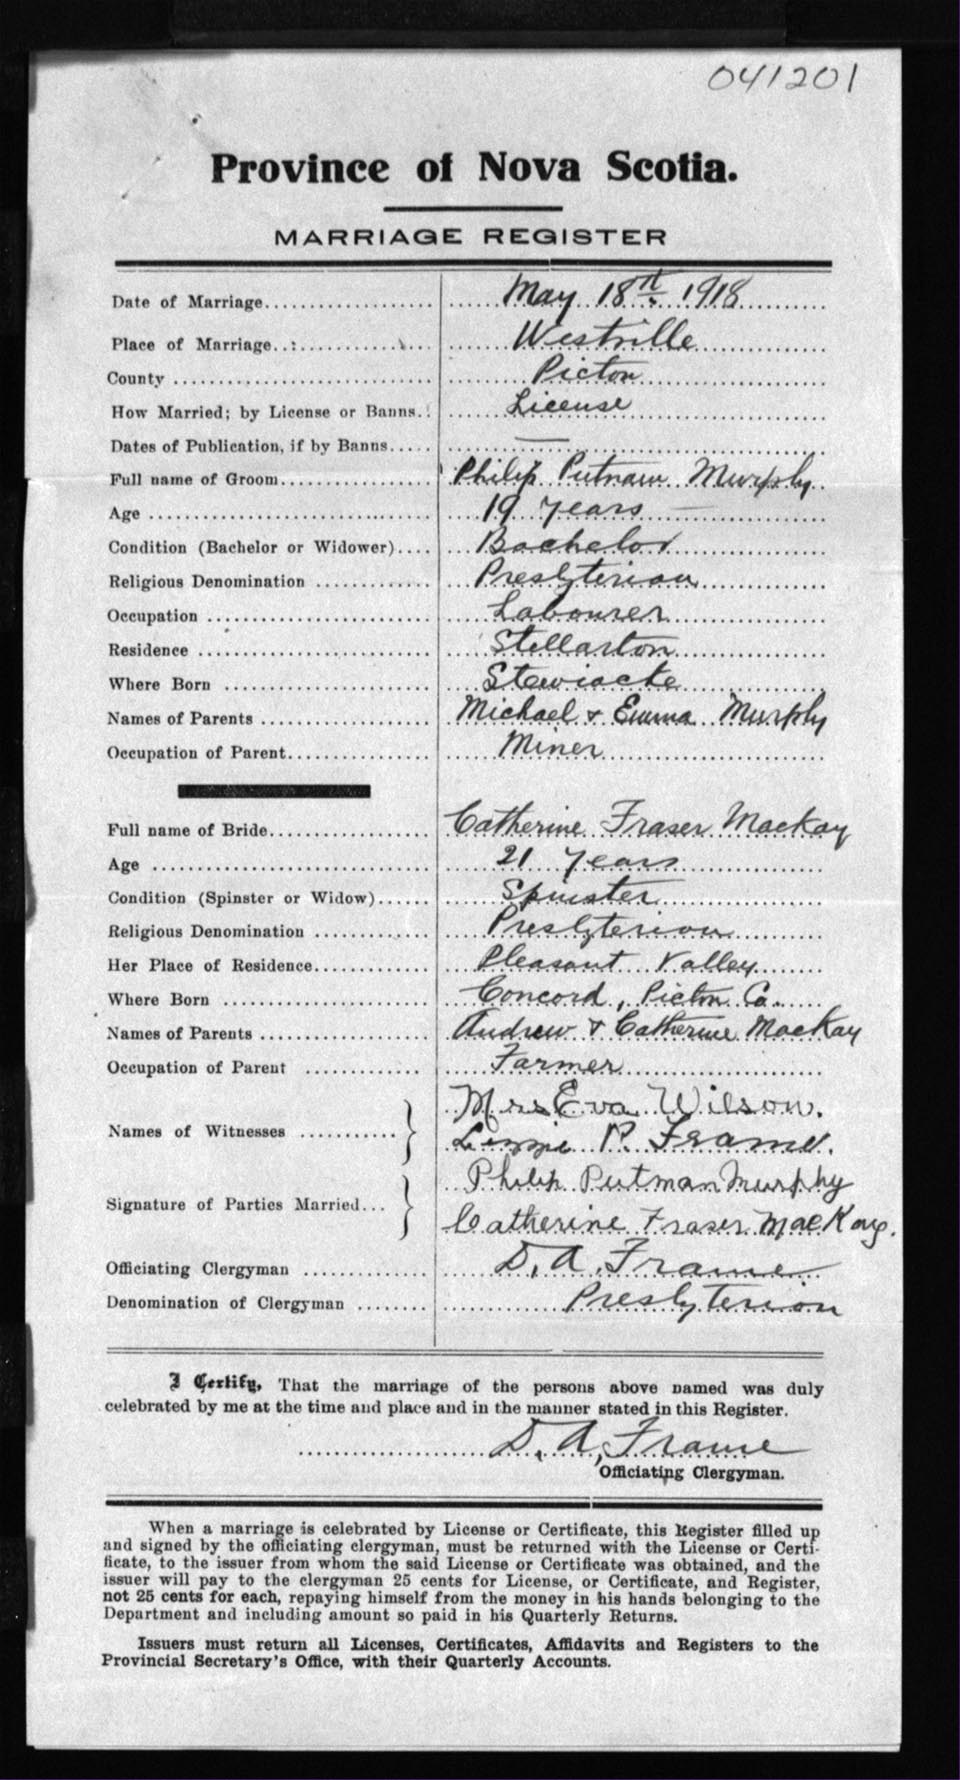 041201
Province of Nova Scotia.
MARRIAGE REGISTER
Date of Marriage.................... May 18th 1918
Place of Marriage.................... Westville
County .................... Picton
How Married; by License or Banns.. License
Dates of Publication, if by Banns..... —
Full name of Groom.................... Philip Putnam Murphy
Age .................... 19 years —
Condition (Bachelor or Widower).... Bachelor
Religious Denomination .................... Presbyterian
Occupation .................... Labourer
Residence .................... Stellarton
Where Born .................... Stewiacke
Names of Parents .................... Michael & Emma Murphy
Occupation of Parent.................... Miner
Full name of Bride.................... Catherine Fraser MacKay
Age .................... 21 years
Condition (Spinster or Widow)...... Spinster
Religious Denomination .................... Presbyterian
Her Place of Residence.................... Pleasant Valley
Where Born .................... Concord, Picton Co.
Names of Parents .................... Andrew & Catherine MacKay
Occupation of Parent .................... Farmer
Names of Witnesses .................... Mrs Eva Wilson.
Lizzie P. Frame.
Signature of Parties Married... Philip Putman Murphy
Catherine Fraser MacKay.
Officiating Clergyman .................... D. A. Frame
Denomination of Clergyman ........ Presbyterian
I Certify, That the marriage of the persons above named was duly
celebrated by me at the time and place and in the manner stated in this Register.
D. A. Frame
Officiating Clergyman.
When a marriage is celebrated by License or Certificate, this Register filled up
and signed by the officiating clergyman, must be returned with the License or Certi-
ficate, to the issuer from whom the said License or Certificate was obtained, and the
issuer will pay to the clergyman 25 cents for License, or Certificate, and Register,
not 25 cents for each, repaying himself from the money in his hands belonging to the
Department and including amount so paid in his Quarterly Returns.
Issuers must return all Licenses, Certificates, Affidavits and Registers to the
Provincial Secretary's Office, with their Quarterly Accounts.